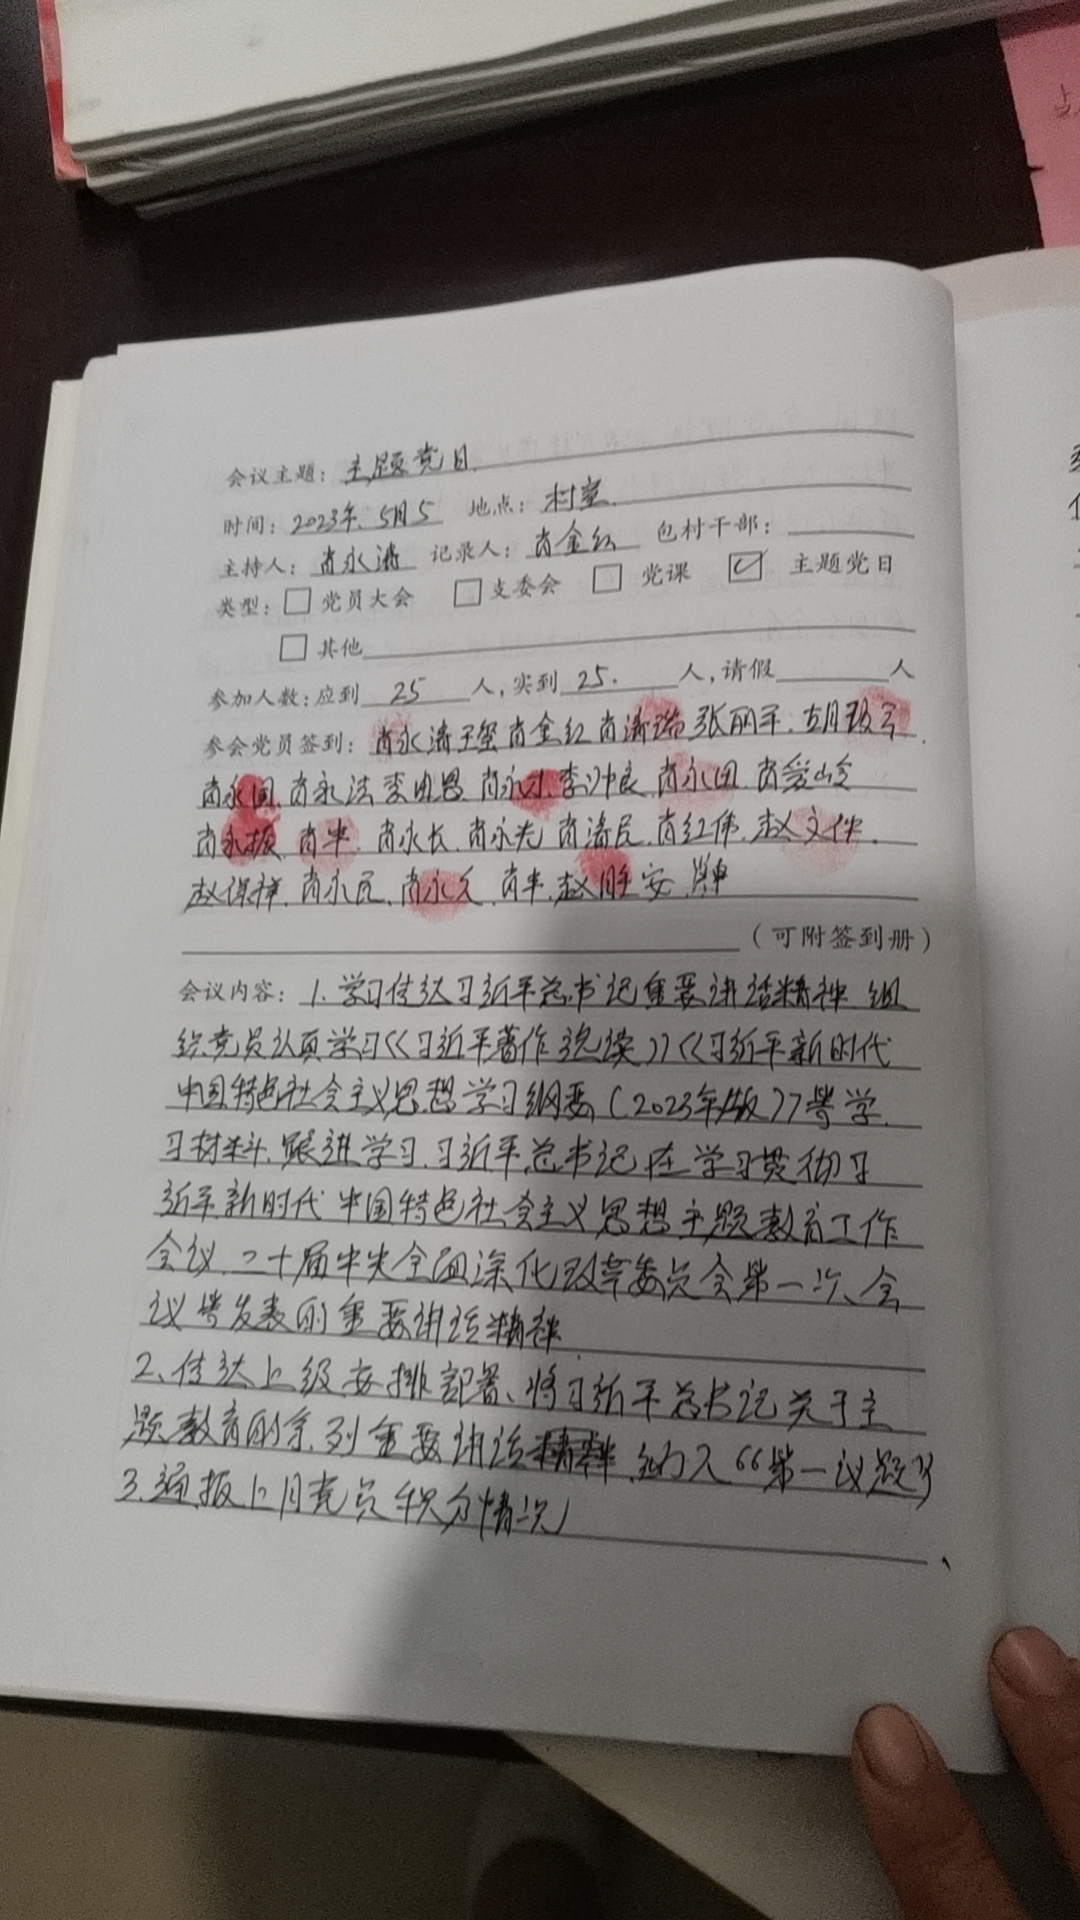 会议主题：主题党日
时间：2023年.5月5 地点：村室.
主持人：肖永涛 记录人：肖金红 包村干部：
类型：□党员大会 □支委会 □党课 ☑主题党日
□其他
参加人数：应到 25 人，实到 25. 人，请假 人
参会党员签到：肖永涛 肖金红 肖涛瑞 张丽平.
肖永国.肖永法 肖永才.李帅良.肖永田.肖爱岭
肖永振 肖申.肖永长.肖永光 肖涛民.肖红伟.赵文体.
赵保祥.肖永民.肖永久.肖丰.赵胜安.
（可附签到册）
会议内容：1.学习传达习近平总书记重要讲话精神 组
织党员认真学习《习近平著作选读》《习近平新时代
中国特色社会主义思想学习纲要（2023年版）》等学
习材料.跟进学习.习近平总书记在学习贯彻习
近平新时代中国特色社会主义思想主题教育工作
会议.二十届中央全面深化改革委员会第一次会
议等发表的重要讲话精神
2、传达上级安排部署、将习近平总书记关于主
题教育的系列重要讲话精神 纳入“第一议题”
3.通报上月党员积分情况